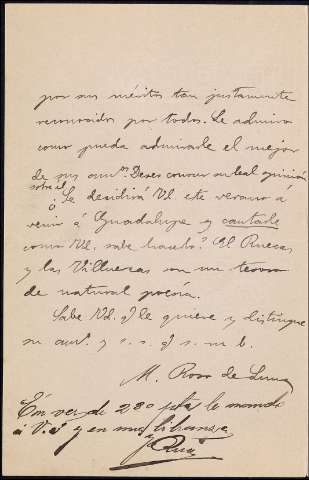 por sus méritos tan justamente
reconocidos por todos. Le admiro
como pueda admirarle el mejor
de sus am.ᵒˢ Deseo conocer su leal opinión
sobre el
¿Se decidirá Vd. este verano á
venir á Guadalupe y cantarle
como Vd. sabe hacerlo? El Ruecas
y las Villuercas son un tesoro
de natural poesía.
Sabe Vd. q.ᵉ le quiere y distingue
su am.ᵒ y s. s. q. s. m. b.
M. Roso de Luna
En vez de 280 ptas le mando
á V. y en mi libranza